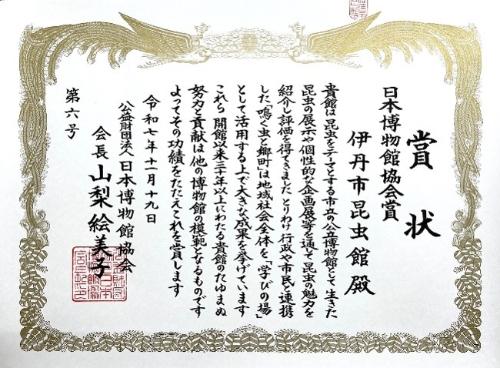 賞状
日本博物館協会賞
伊丹市昆虫館殿
貴館は昆虫をテーマとする市立の公立博物館として生きた
昆虫の展示や個性的な企画展等を通して昆虫の魅力を
紹介し評価を得てきました とりわけ行政や市民と連携
した「鳴く虫と郷町」は地域社会全体を「学びの場」
として活用する上で大きな成果を挙げています
これら開館以来三十年以上にわたる貴館のたゆまぬ
努力と貢献は他の博物館の模範となるものです
よってその功績をたたえこれを賞します
令和七年十一月十九日
公益財団法人日本博物館協会
会長 山梨絵美子
第六号